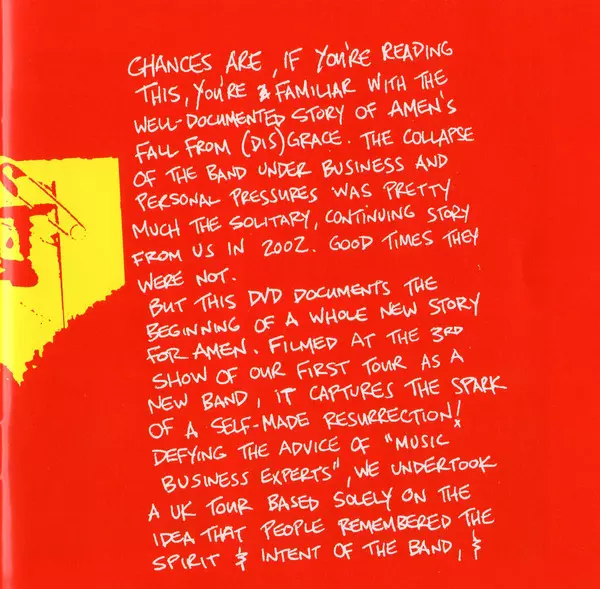 CHANCES ARE, IF YOU'RE READING
THIS, YOU'RE FAMILIAR WITH THE
WELL-DOCUMENTED STORY OF AMEN'S
FALL FROM (DIS)GRACE. THE COLLAPSE
OF THE BAND UNDER BUSINESS AND
PERSONAL PRESSURES WAS PRETTY
MUCH THE SOLITARY, CONTINUING STORY
FROM US IN 2002. GOOD TIMES THEY
WERE NOT.
BUT THIS DVD DOCUMENTS THE
BEGINNING OF A WHOLE NEW STORY
FOR AMEN. FILMED AT THE 3RD
SHOW OF OUR FIRST TOUR AS A
NEW BAND, IT CAPTURES THE SPARK
OF A SELF-MADE RESURRECTION!
DEFYING THE ADVICE OF "MUSIC
BUSINESS EXPERTS", WE UNDERTOOK
A UK TOUR BASED SOLELY ON THE
IDEA THAT PEOPLE REMEMBERED THE
SPIRIT & INTENT OF THE BAND, &